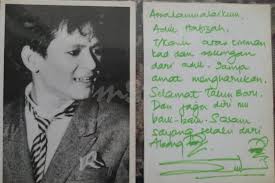 Assalamualaikum,
Adik Hafizah,
T/Kasih atas kiriman
kad dan sokongan
dari adik. Ianya
amat mengharukan.
Selamat Tahun Baru.
Dan jaga diri mu
baik-baik. Salam
sayang selalu dari
Along